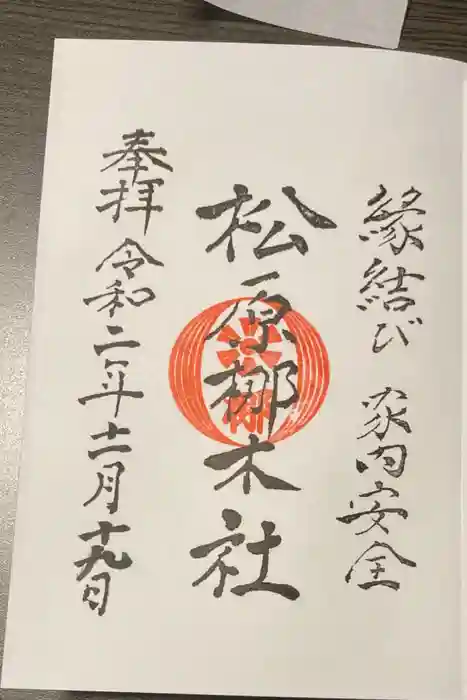 縁結び 家内安全
松原梛木社
奉拝 令和二年十二月十九日